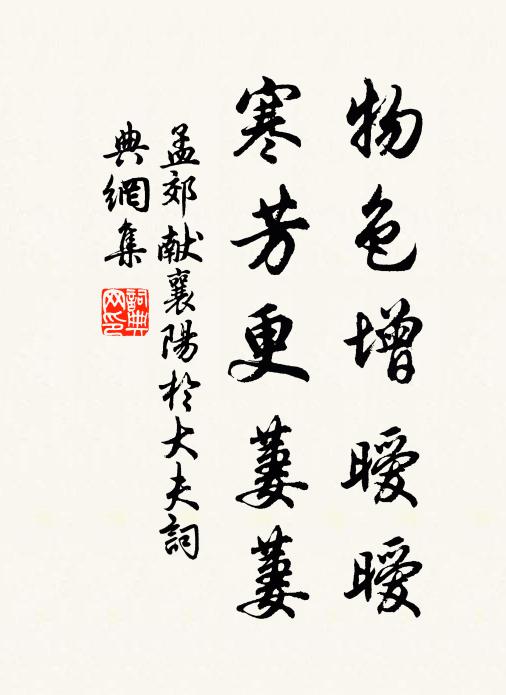 物色增曖曖
寒芳更萋萋
孟郊献襄陽於大夫詞
典網集
詞典网印